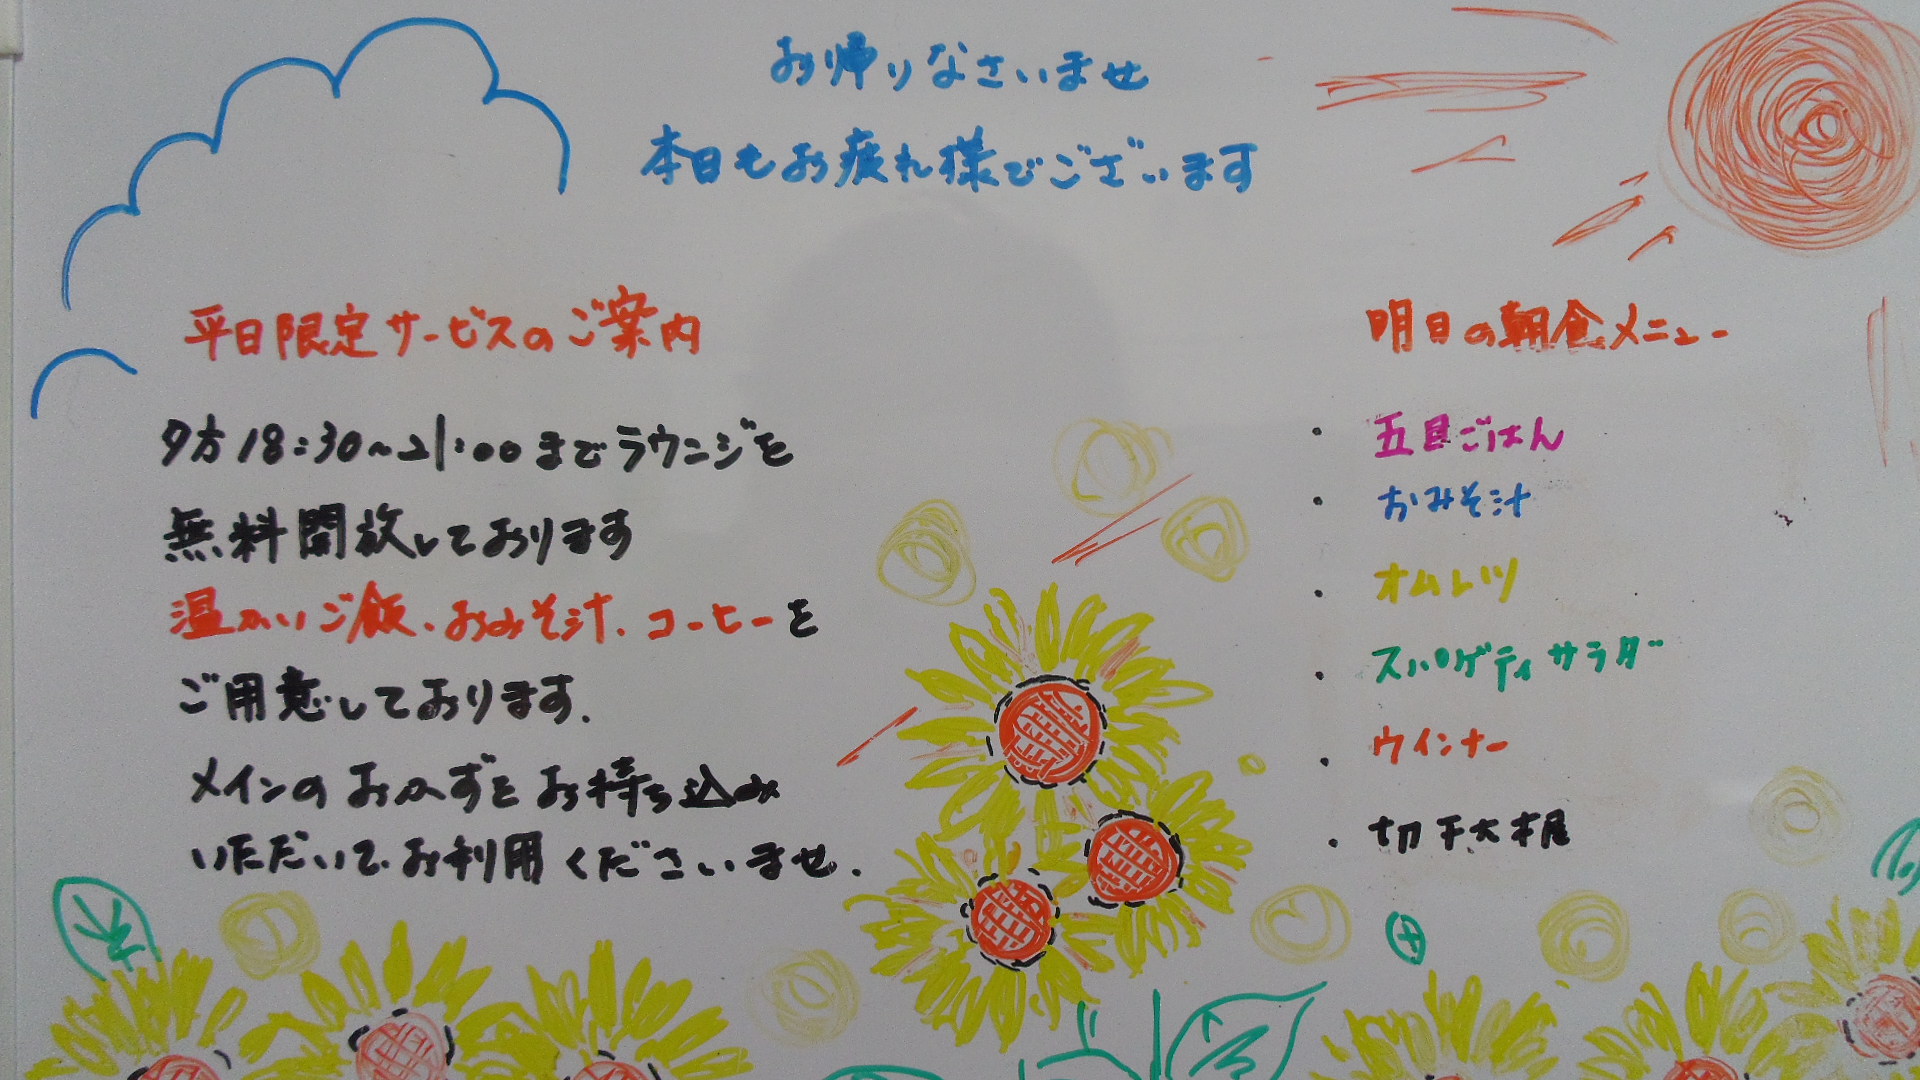 お帰りなさいませ
本日もお疲れ様でございます
平日限定サービスのご案内
夕方18:30〜21:00までラウンジを
無料開放しております
温かいご飯、おみそ汁、コーヒーを
ご用意しております.
メインのおかずをお持ち込み
いただいて、お利用くださいませ.
明日の朝食メニュー
・五目ごはん
・おみそ汁
・オムレツ
・スパゲティサラダ
・ウインナー
・切干大根